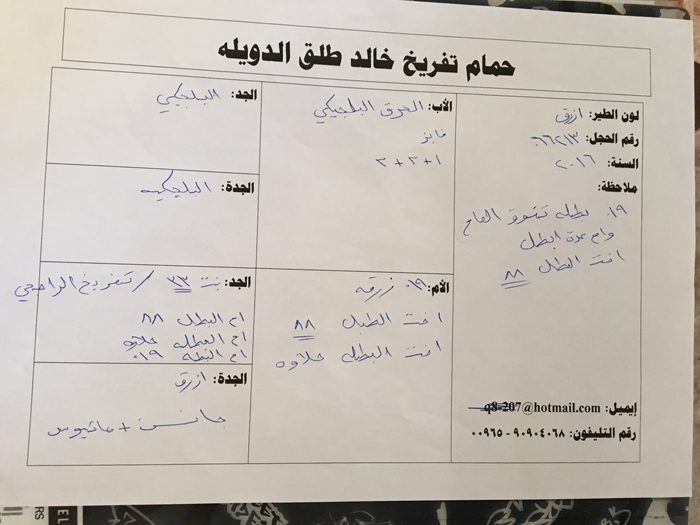 حمام تفريخ خالد طلق الدويله
لون الطير: ازرق
رقم الحجل: ٦٦٢١٣
السنة: ٢٠١٦
ملاحظة:
٠١٩ بطله تفوق العام
وام عدة ابطل
اخت البطل ٨٨
إيميل: q8-207@hotmail.com
رقم التليفون: ٩٠٩٠٤٠٦٨ - ٠٠٩٦٥
الأب: العرق البلجيكي
فايز
١+٢+٣
الأم: ٠١٩ زرقه
اخت الطبل ٨٨
اخت البطله حلاوه
الجد: البلجيكي
الجدة: البلجيكيه
الجد: بنت ٣٣ / تفريخ الراجحي
ام البطل ٨٨
ام البطله حلاوه
ام البطه ٠١٩
الجدة: ازرق
جانسن + ماتيوس
EL
RS